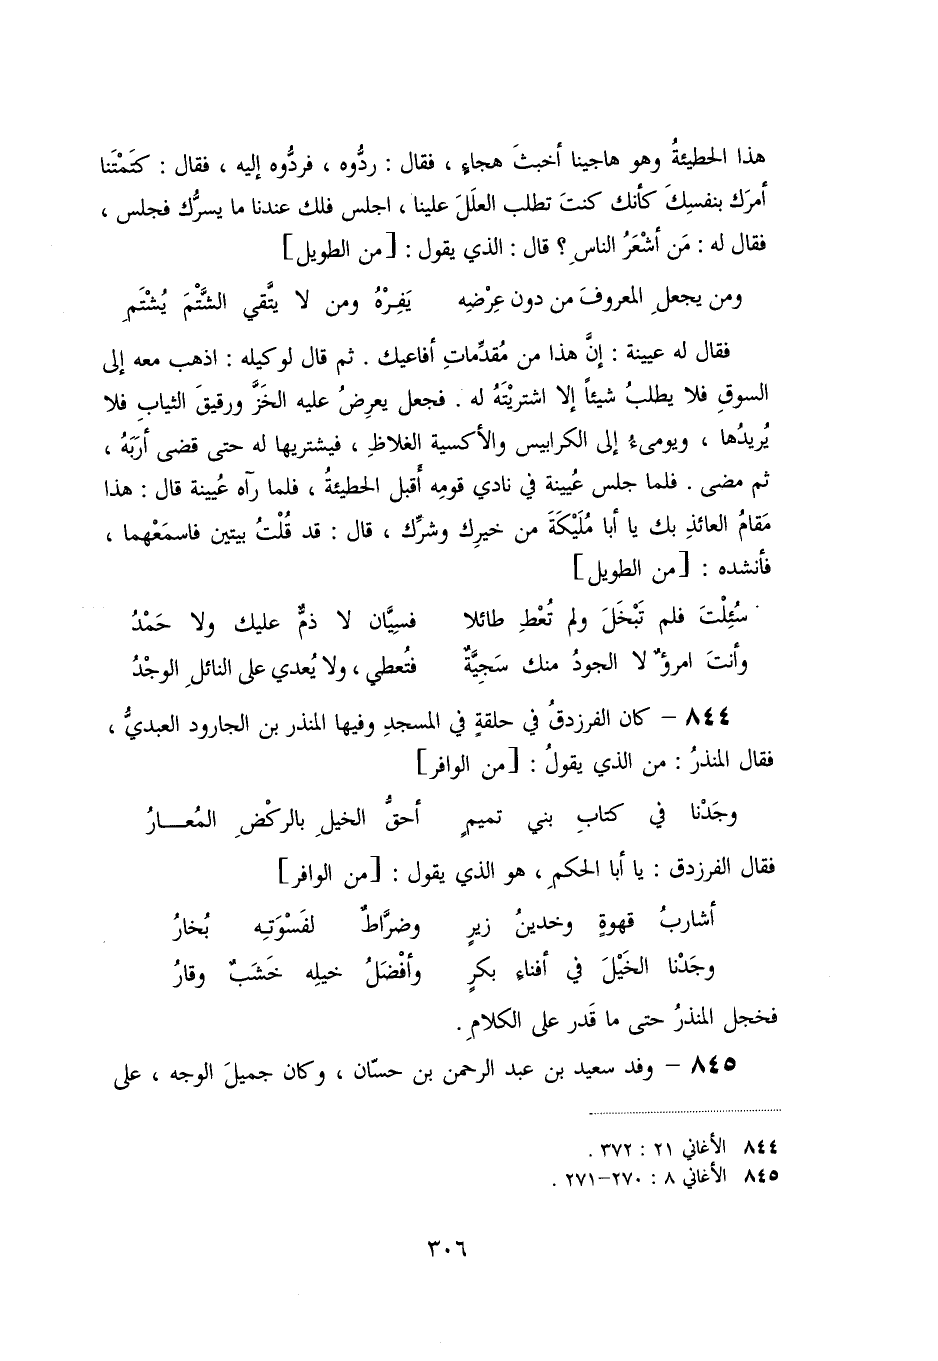 هذا الحطيئةُ وهو هاجينا أخبثَ هجاءٍ ، فقال : ردُّوه ، فردُّوه إليه ، فقال : كتَمْتَنا
أمرَك بنفسِكَ كأنك كنتَ تطلب العلَلَ علينا ، اجلس فلك عندنا ما يسرُّك فجلس ،
فقال له : مَن أشْعَرُ الناسِ ؟ قال : الذي يقول : [من الطويل]
ومن يجعلِ المعروفَ من دون عِرْضِهِ يَفِرْهُ ومن لا يتَّقي الشَّتْمَ يُشْتَمِ
فقال له عيينة : إنَّ هذا من مُقدِّماتِ أفاعيك . ثم قال لوكيله : اذهب معه إلى
السوقِ فلا يطلبُ شيئاً إلا اشتريْتَهُ له . فجعل يعرِضُ عليه الخَزَّ ورقيقَ الثيابِ فلا
يُريدُها ، ويومىءُ إلى الكرابيس والأكسية الغلاظِ ، فيشتريها له حتى قضى أرَبَهُ ،
ثم مضى . فلما جلس عُيينة في نادي قومِه أَقبل الحطيئةُ ، فلما رآه عُيينة قال : هذا
مَقامُ العائذِ بك يا أبا مُلَيْكَةَ من خيرِك وشرِّك ، قال : قد قُلْتُ بيتين فاسمَعْهما ،
فأنشده : [من الطويل]
سُئِلْتَ فلم تَبْخَلَ ولم تُعْطِ طائلا فسِيَّان لا ذمٌّ عليك ولا حَمْدُ
وأنتَ امرؤٌ لا الجودُ منك سَجيَّةٌ فتُعطي ، ولا يُعدي على النائلِ الوجْدُ
٨٤٤ – كان الفرزدقُ في حلقةٍ في المسجدِ وفيها المنذر بن الجارود العبديُّ ،
فقال المنذرُ : من الذي يقولُ : [من الوافر]
وجَدْنا في كتابِ بني تميمٍ أحقُّ الخيلِ بالركْضِ المُعـــارُ
فقال الفرزدق : يا أبا الحكمِ ، هو الذي يقول : [من الوافر]
أشاربُ قهوةٍ وخدينُ زيرٍ وضرَّاطٌ لفَسْوَتِـه بُخارُ
وجَدْنا الخَيْلَ في أفناءِ بكرٍ وأفْضَلُ خيلِه خَشَبٌ وقارُ
فخجل المنذرُ حتى ما قَدر على الكلامِ .
٨٤٥ – وفد سعيد بن عبد الرحمن بن حسّان ، وكان جميلَ الوجه ، على
٨٤٤ الأغاني ٢١ : ٣٧٢ .
٨٤٥ الأغاني ٨ : ٢٧٠–٢٧١ .
٣٠٦